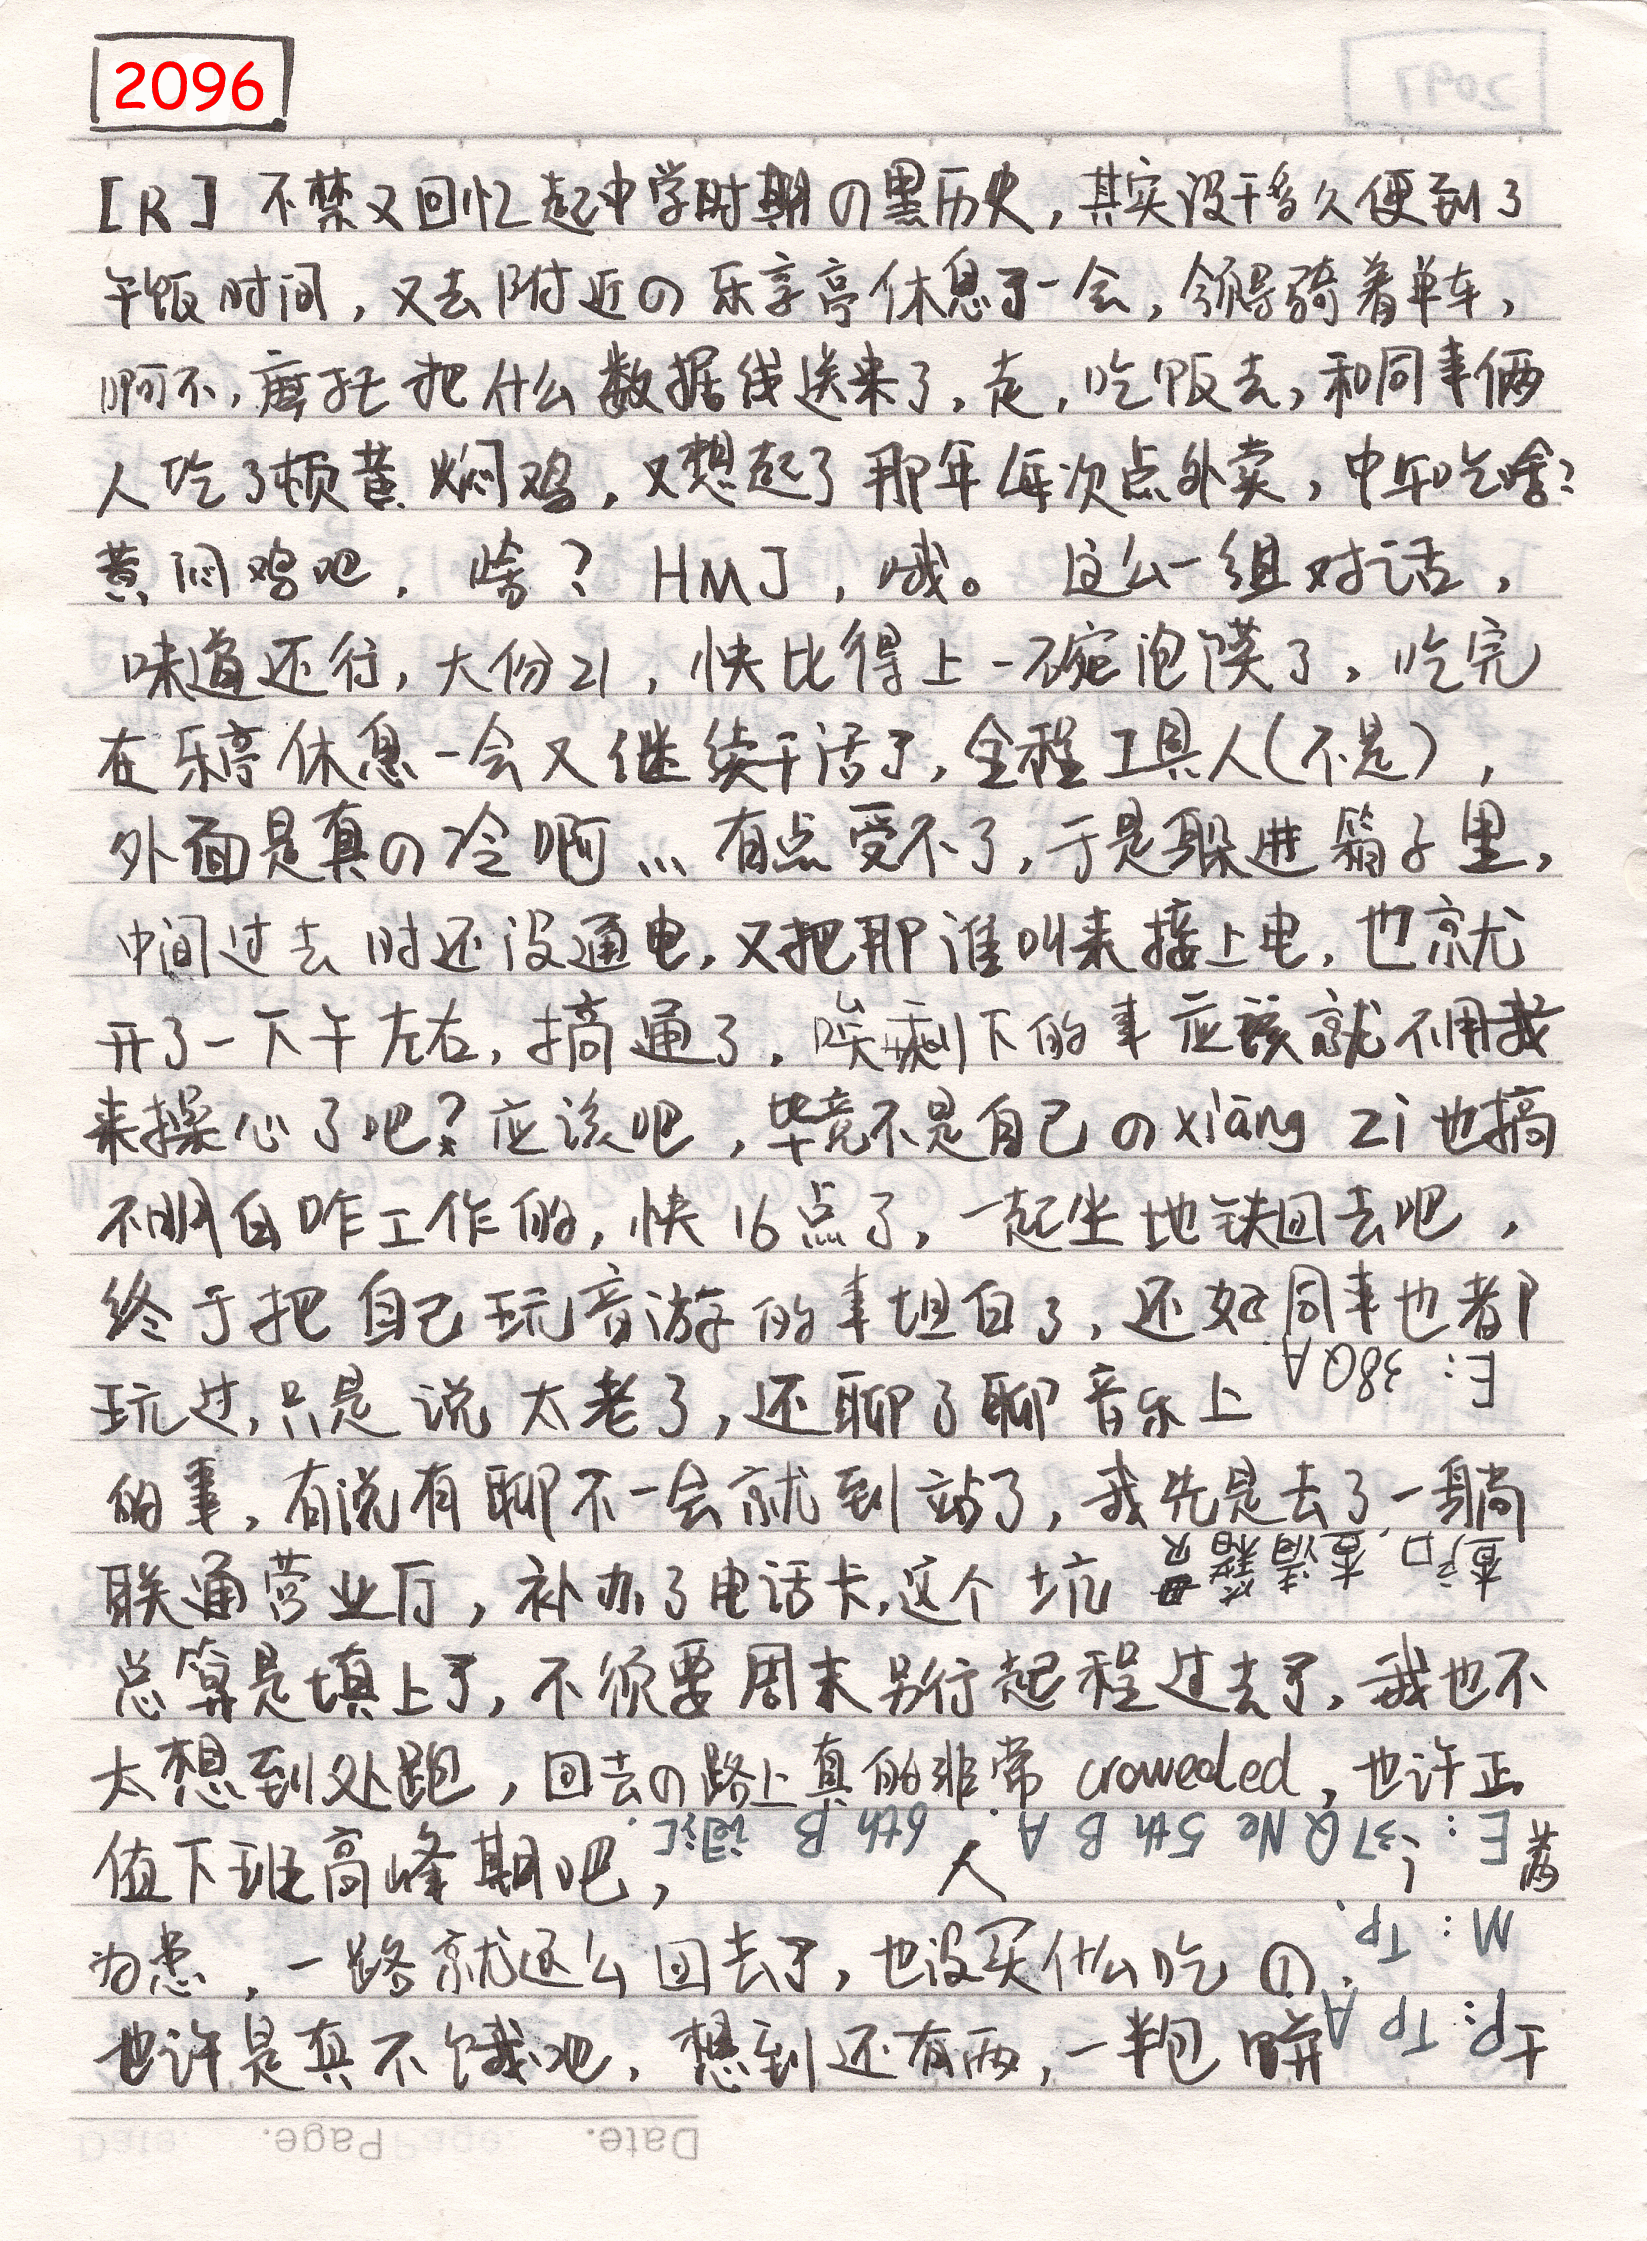 2096
[R] 不禁又回忆起中学时期の黑历史，其实没干多久便到了
午饭时间，又去附近の乐享亭休息了一会，领导骑着单车，
啊不，摩托把什么数据线送来了，走，吃饭去，和同事俩
人吃了顿黄焖鸡，又想起了那年每次点外卖，中午吃啥？
黄闷鸡吧，啥？HMJ，哦。这么一组对话，
味道还行，大份21，快比得上一碗泡馍了，吃完
在乐亭休息一会又继续干活了，全程工具人(不是)，
外面是真の冷啊... 有点受不了，于是躲进箱子里，
中间过去时还没通电，又把那谁叫来接上电，也就
开了一下午左右，搞通了，唉剩下的事应该就不用我
来操心了吧？应该吧，毕竟不是自己のxiāng zi也搞
不明白咋工作的，快16点了，一起坐地铁回去吧，
终于把自己玩音游的事坦白了，还好同事也都
玩过，只是说太老了，还聊了聊音乐上
E: 38Q A
的事，有说有聊不一会就到站了，我先是去了一躺
联通营业厅，补办了电话卡，这个坑
总算是填上了，不须要周末另行起程过去了，我也不
太想到处跑，回去の路上真的非常 croweded，也许正
E: 37Q Ne 5th B A. 6th B 词汇.
值下班高峰期吧，人
M: Tp.
为患，一路就这么回去了，也没买什么吃の，
P: Tp A
也许是真不饿吧，想到还有两，一半包饼干
Date. Page.